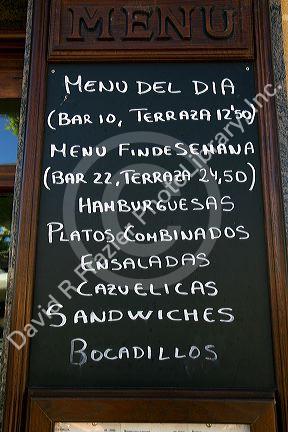 MENU
MENU DEL DIA
(BAR 10, TERRAZA 12'50)
MENU FINDESEMANA
(BAR 22, TERRAZA 24,50)
HAMBURGUESAS
PLATOS COMBINADOS
ENSALADAS
CAZUELICAS
SANDWICHES
BOCADILLOS
David R. Frazier Photolibrary, Inc.